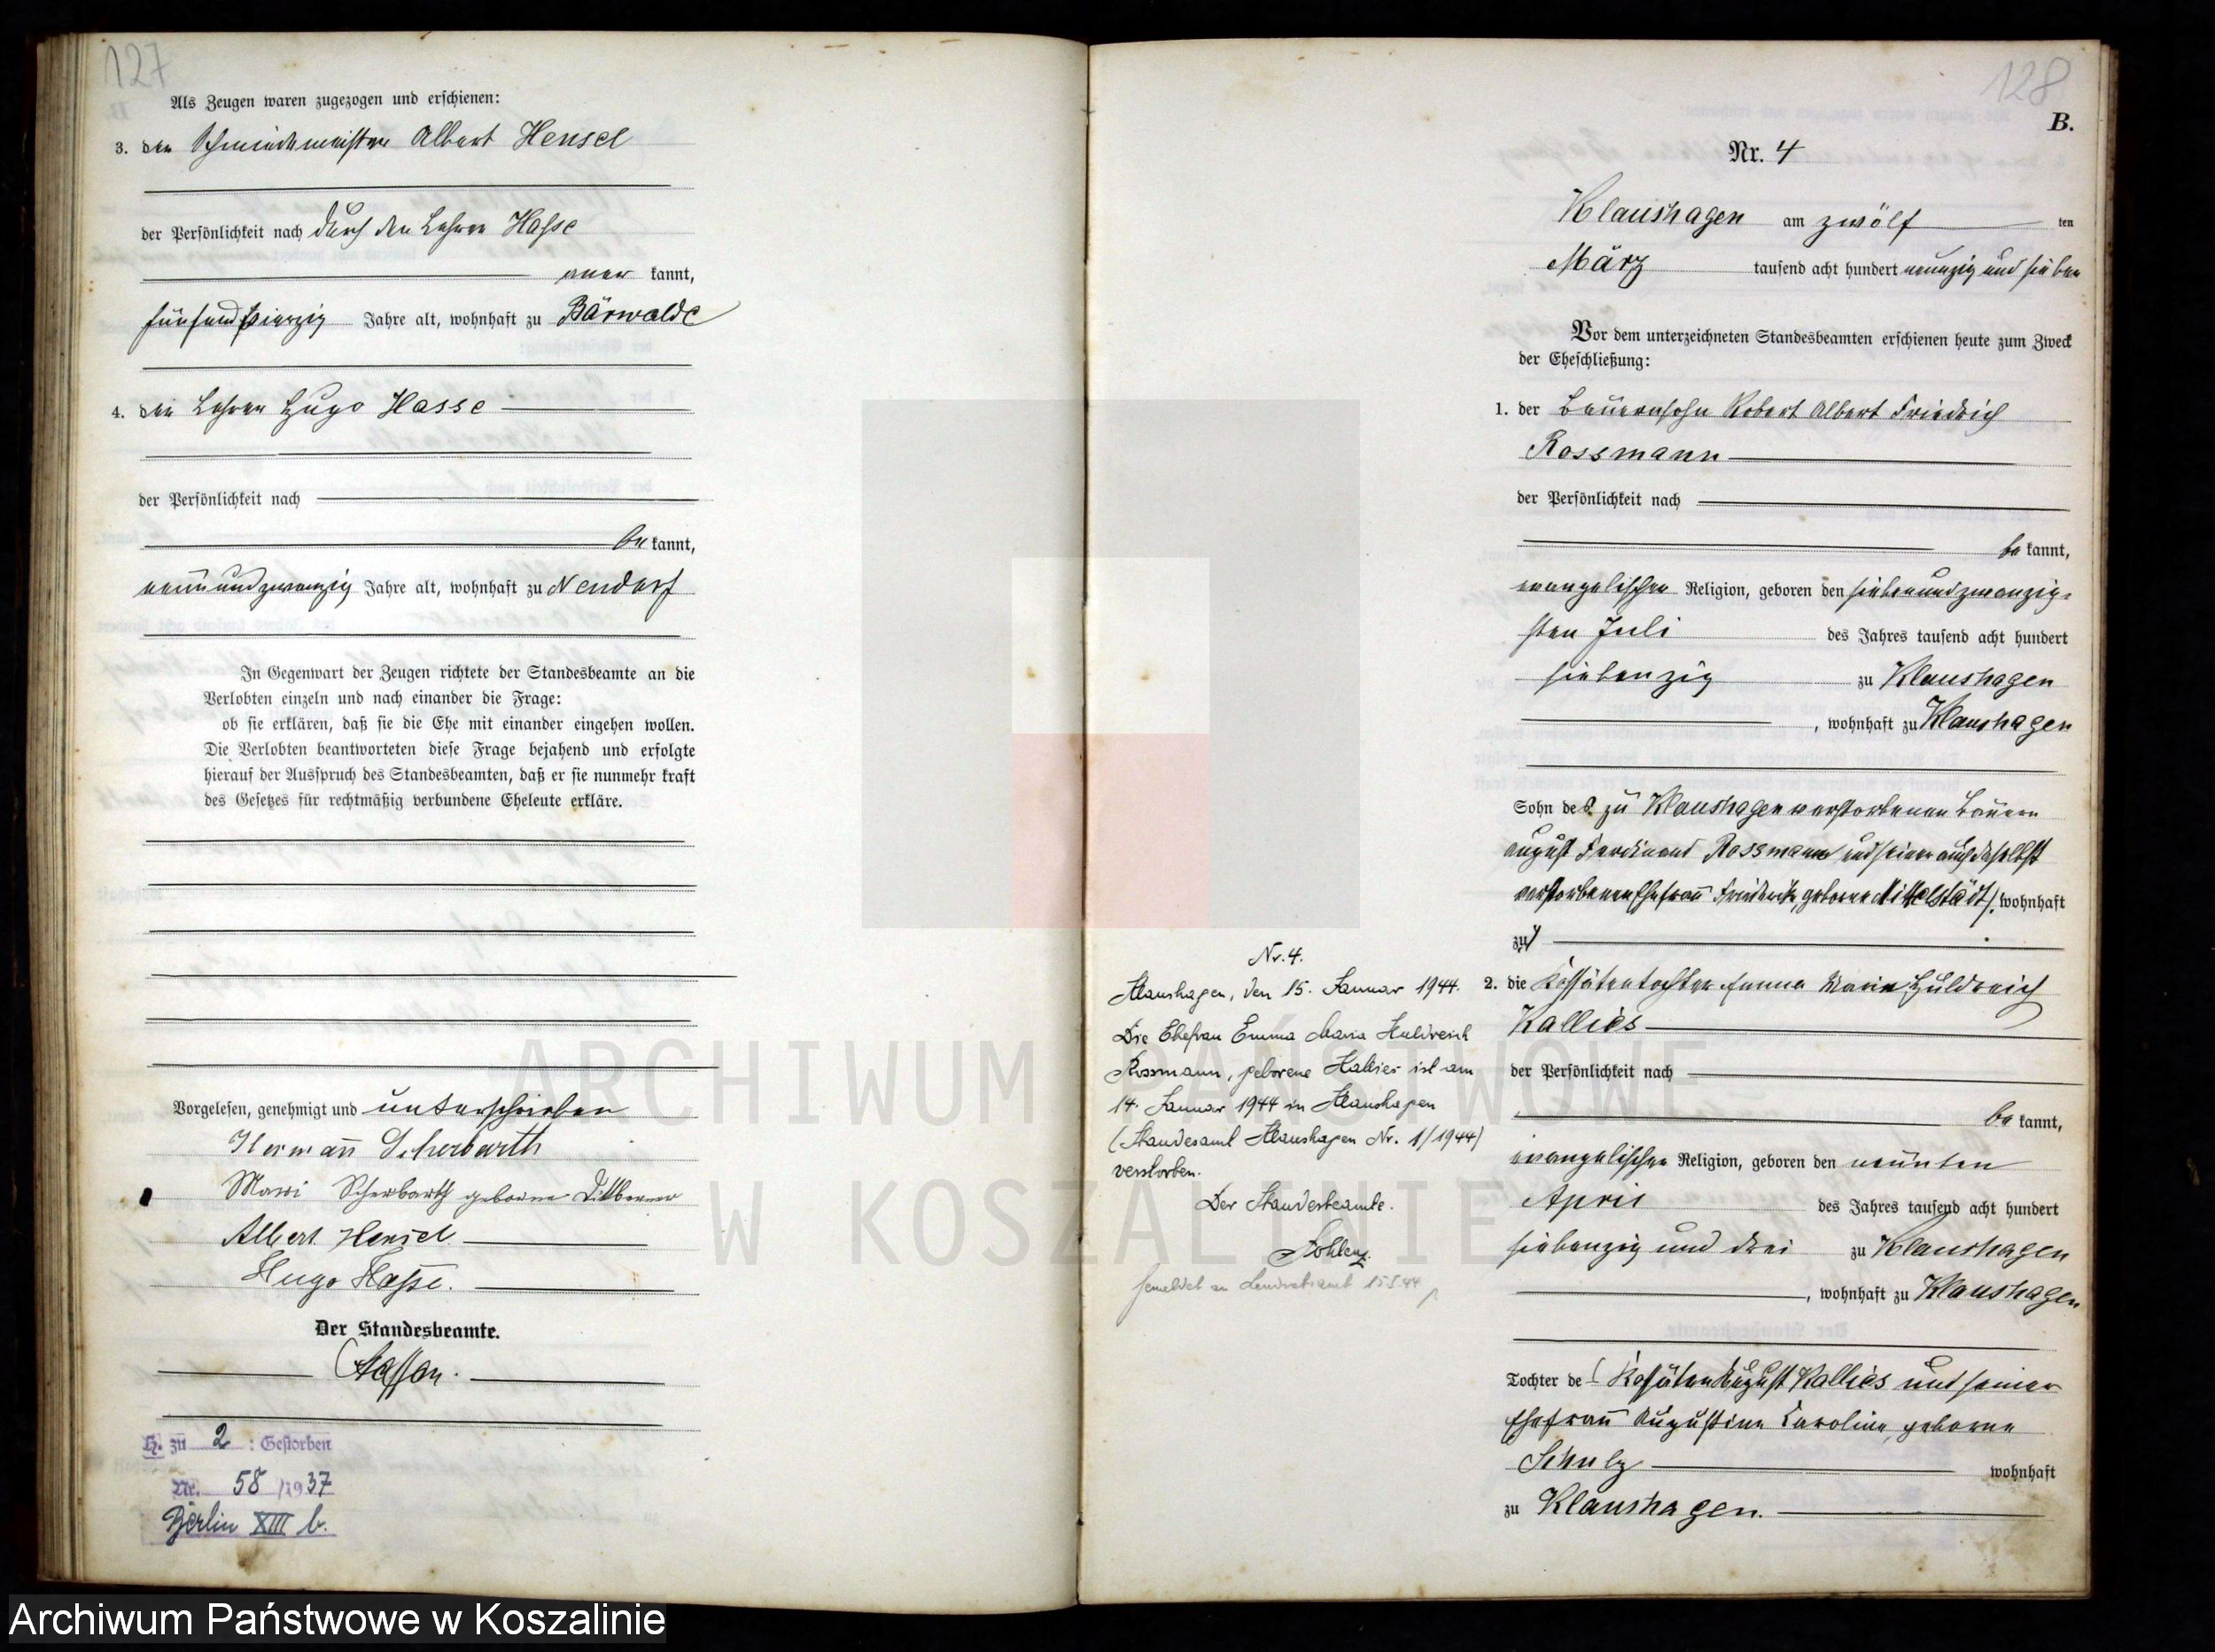 127
Als Zeugen waren zugezogen und erschienen:
3. der Schmiedemeister Albert Hensel
der Persönlichkeit nach durch den Lehrer Hasse
aner kannt,
fünfundvierzig Jahre alt, wohnhaft zu Bärwalde
4. der Lehrer Hugo Hasse
der Persönlichkeit nach
be kannt,
neunundzwanzig Jahre alt, wohnhaft zu Neudorf
In Gegenwart der Zeugen richtete der Standesbeamte an die
Verlobten einzeln und nach einander die Frage:
ob sie erklären, daß sie die Ehe mit einander eingehen wollen.
Die Verlobten beantworteten diese Frage bejahend und erfolgte
hierauf der Ausspruch des Standesbeamten, daß er sie nunmehr kraft
des Gesetzes für rechtmäßig verbundene Eheleute erkläre.
Vorgelesen, genehmigt und unterschrieben
Hermann Scherbarth
Marie Scherbarth geborene Dittberner
Albert Hensel
Hugo Hasse.
Der Standesbeamte.
H. zu 2 : Gestorben
Nr. 58 /1937
Berlin XIII b.
128
B.
Nr. 4
Klaushagen am zwölf ten
März tausend acht hundert neunzig und sieben
Vor dem unterzeichneten Standesbeamten erschienen heute zum Zweck
der Eheschließung:
1. der Bauernsohn Robert Albert Friedrich
Rossmann
der Persönlichkeit nach
be kannt,
evangelischer Religion, geboren den siebenundzwanzig-
sten Juli des Jahres tausend acht hundert
siebenzig zu Klaushagen
, wohnhaft zu Klaushagen
Sohn des zu Klaushagen verstorbenen Bauern
August Ferdinand Rossmann und seiner auch daselbst
verstorbenen Ehefrau Friederike, geborene Mittelstädt, wohnhaft
zu
2. die Kossätentochter Emma Marie Huldreich
Kallies
der Persönlichkeit nach
be kannt,
evangelischer Religion, geboren den neunten
April des Jahres tausend acht hundert
siebenzig und drei zu Klaushagen
, wohnhaft zu Klaushagen
Tochter des Kossäten August Kallies und seiner
Ehefrau Augustine Caroline, geborne
Schulz wohnhaft
zu Klaushagen.
Nr. 4.
Klaushagen, den 15. Januar 1944.
Die Ehefrau Emma Maria Huldreich
Rossmann, geborene Kallies ist am
14. Januar 1944 in Klaushagen
(Standesamt Klaushagen Nr. 1/1944)
verstorben.
Der Standesbeamte.
Gemeldet an Landratsamt 15.1.44
ARCHIWUM PAŃSTWOWE
W KOSZALINIE
Archiwum Państwowe w Koszalinie